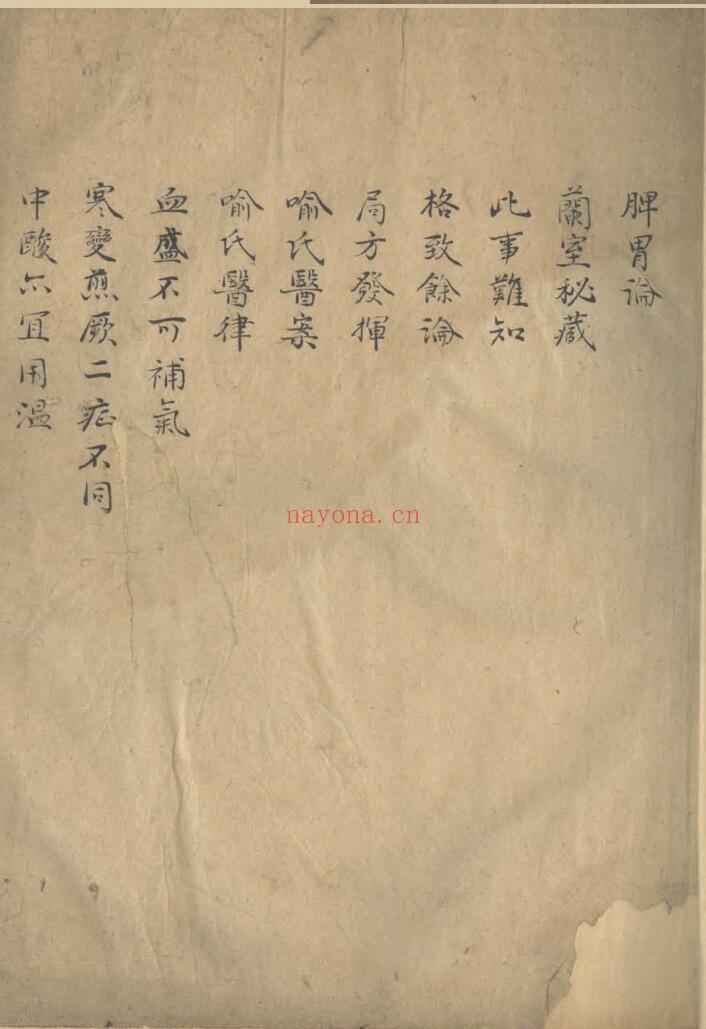 脾胃論
蘭室秘蔵
此事難知
格致餘論
局方發揮
喻氏醫案
喻氏醫律
血盛不可補氣
寒變煎厥二症不同
中酸六宜用溫
nayona.cn